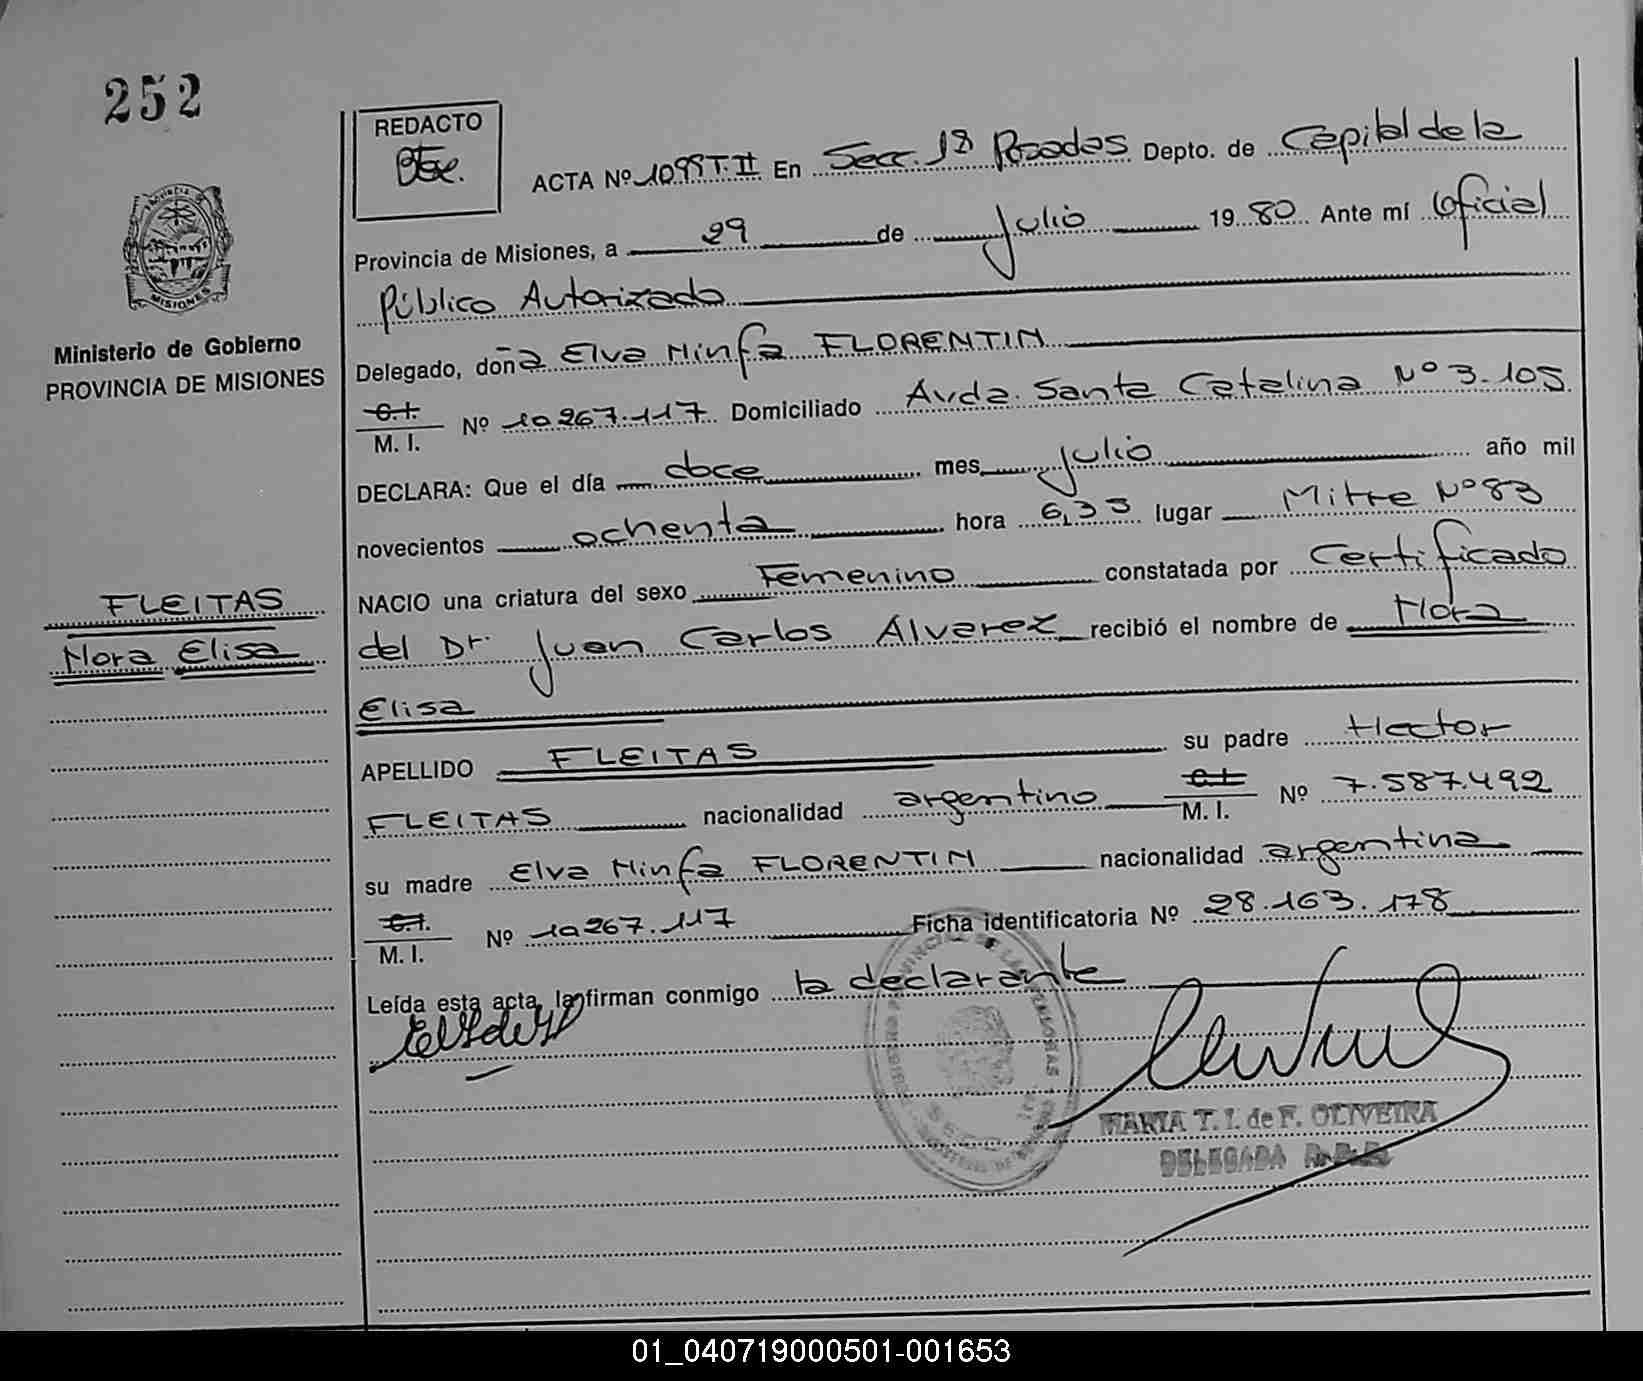 252
REDACTO
ACTA Nº 1099 T. II En Secc. 1ª Posadas Depto. de Capital de la
Provincia de Misiones, a 29 de Julio 1980 Ante mí Oficial
Público Autorizado
Delegado, doña Elva Ninfa FLORENTIN
C.I.
M. I. Nº 10.267.117 Domiciliado Avda. Santa Catalina Nº 3.105
DECLARA: Que el día doce mes julio año mil
novecientos ochenta hora 6,35 lugar Mitre Nº 83
NACIO una criatura del sexo Femenino constatada por Certificado
del Dr. Juan Carlos Alvarez recibió el nombre de Nora
Elisa
APELLIDO FLEITAS su padre Hector
FLEITAS nacionalidad argentino C.I. M. I. Nº 7.587.492
su madre Elva Ninfa FLORENTIN nacionalidad argentina
C.I.
M. I. Nº 10.267.117 Ficha identificatoria Nº 28.163.178
Leída esta acta, la firman conmigo la declarante
MARIA T. I. de F. OLIVEIRA
DELEGADA
MISIONES
Ministerio de Gobierno
PROVINCIA DE MISIONES
FLEITAS
Nora Elisa
01_040719000501-001653